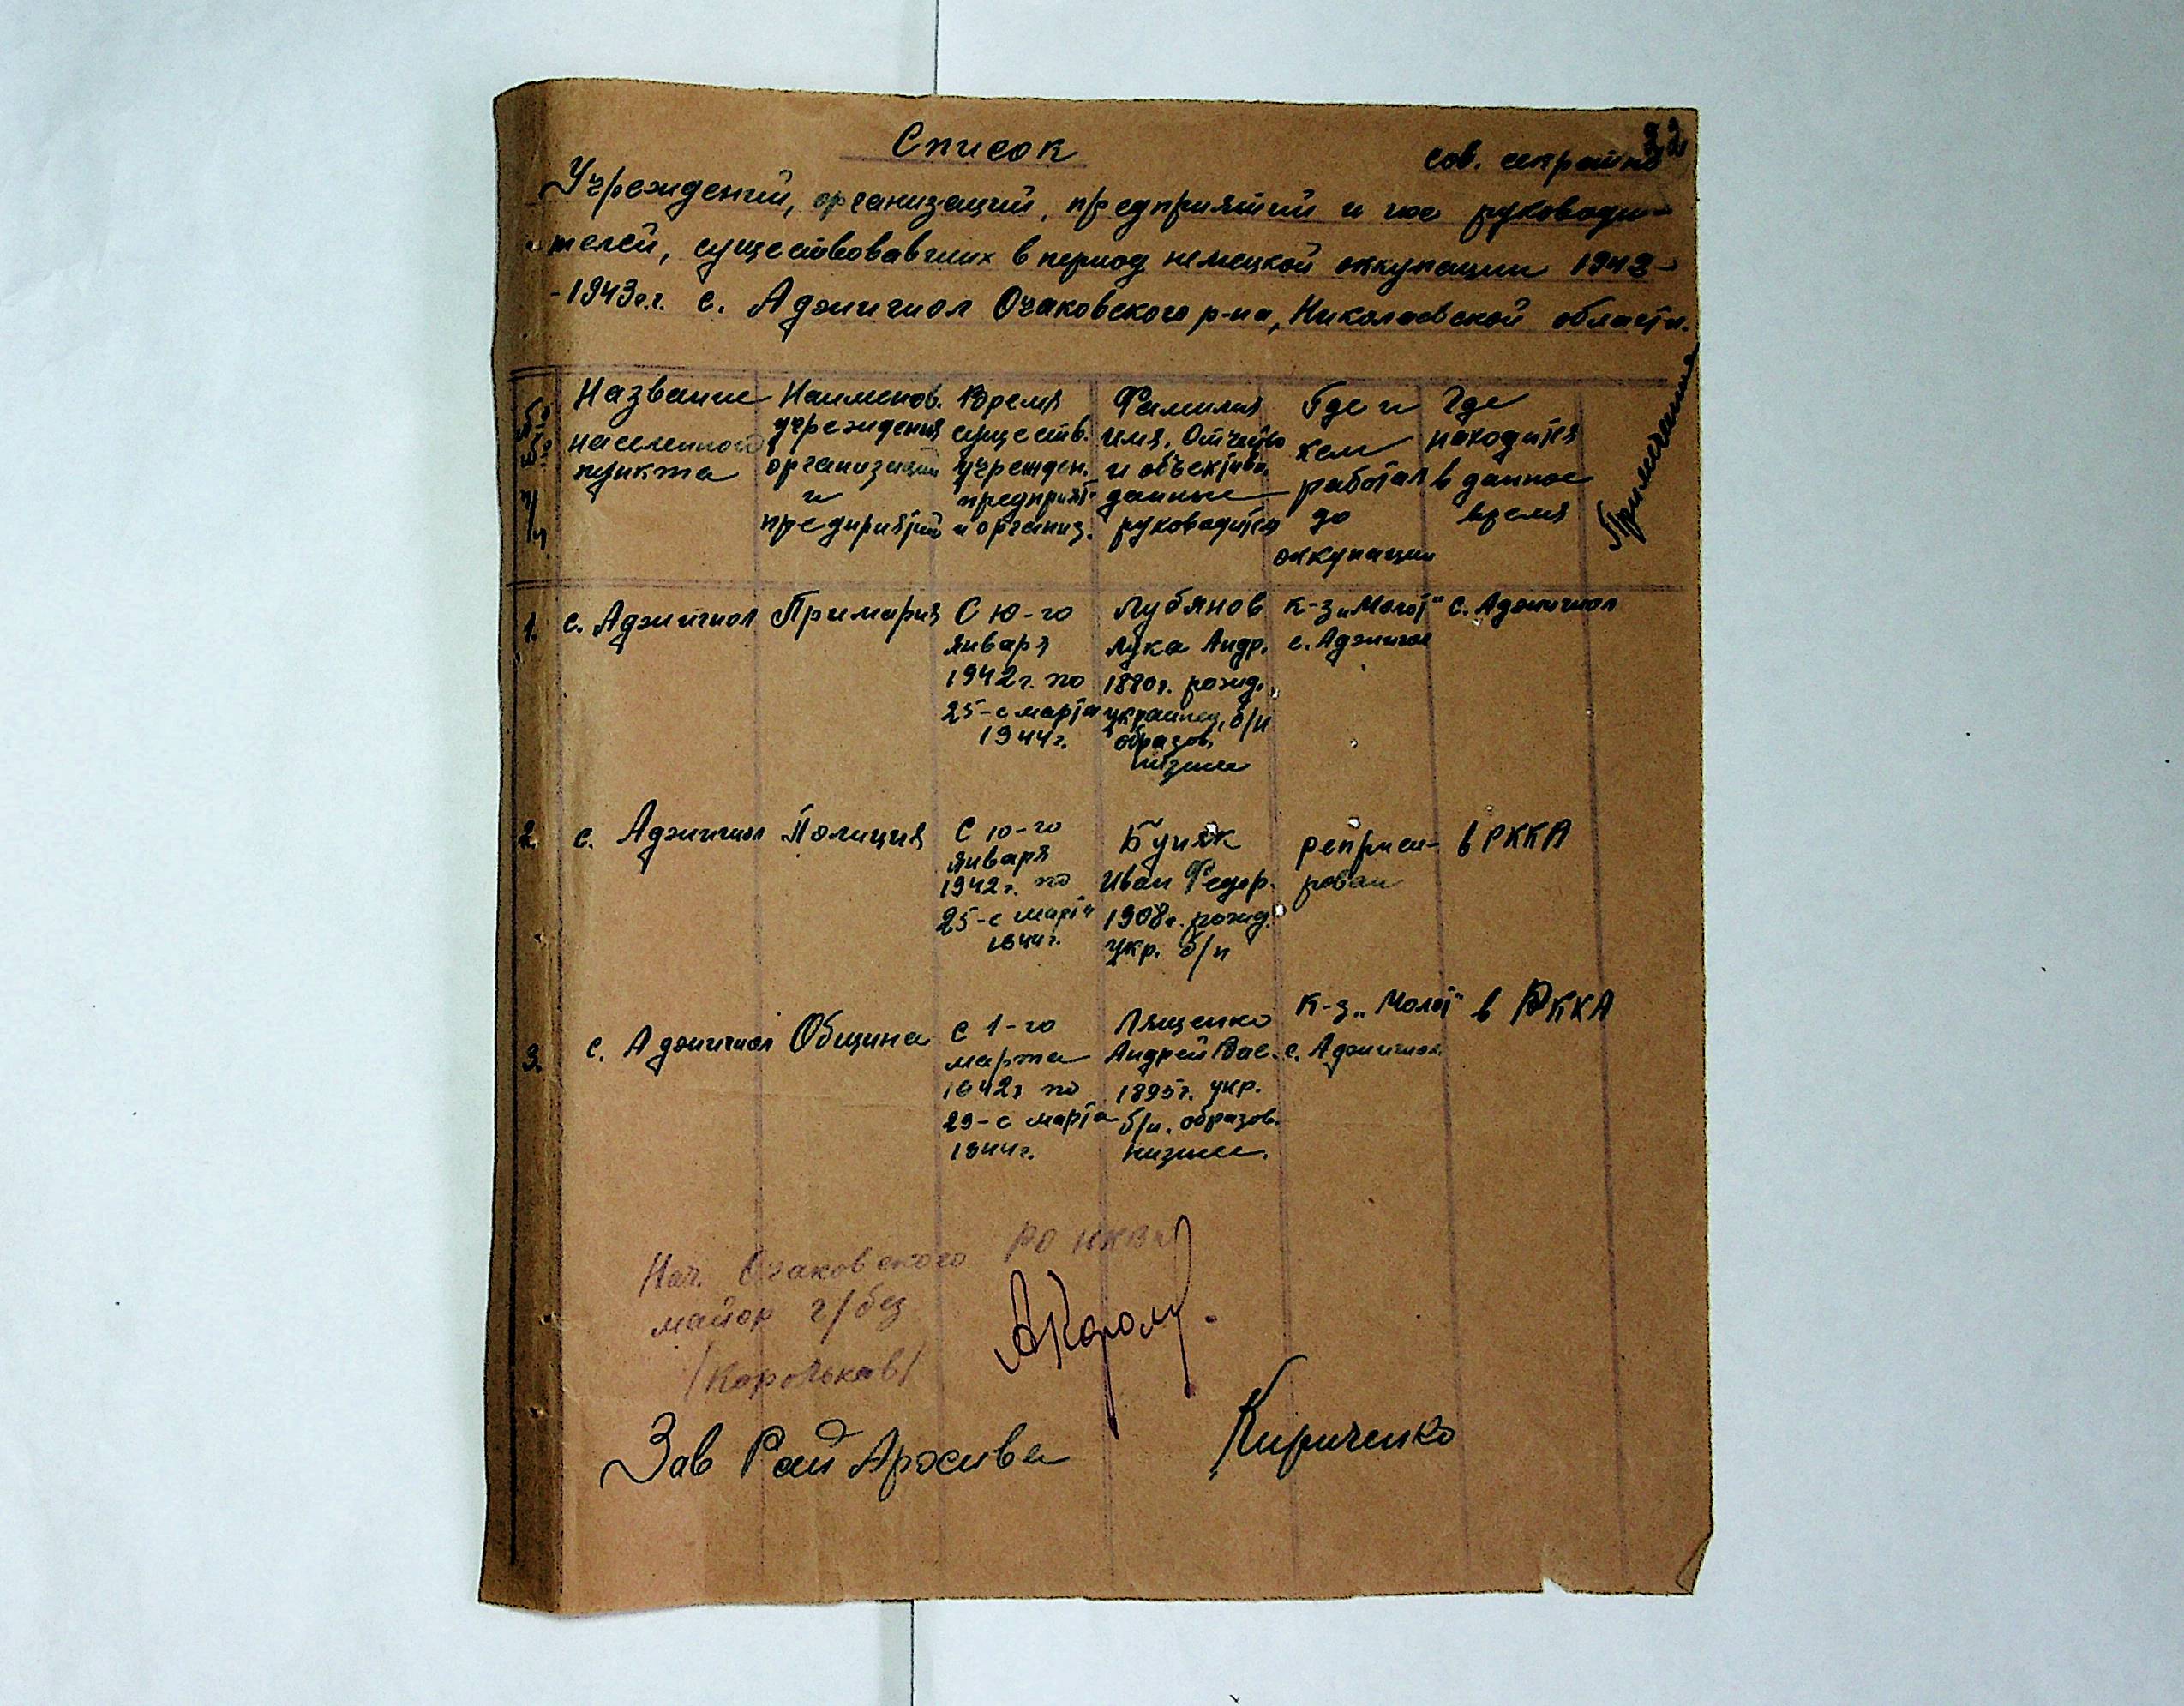 22
Список
сов. секретно
Учреждений, организаций, предприятий и их руководи-
телей, существовавших в период немецкой оккупации 1942-
-1943г.г. с. Аджигиол Очаковского р-на, Николаевской области.
Название населенного пункта
Наименов. учреждения организаций и предприятий
Время существ. учрежден. предприят. и организ.
Фамилия имя, Отчество и объектив. данные руководителя
Где и кем работал до оккупации
Где находится в данное время
Примечание
1. с. Аджигиол Примария С 10-го Лубянов к-з „Молот" с. Аджигиол
января Лука Андр. с. Аджигиол
1942г. по 1880г. рожд.
25-е марта украинец, б/п
1944г. образов.
низшее
2. с. Аджигиол Полиция С 10-го Буняк репрессирован в РККА
января
1942г. по Иван Федор.
25-е марта 1908г. рожд.
1944г. укр. б/п
3. с. Аджигиол Община с 1-го Лященко к-з „Молот" в РККА
марта Андрей Вас. с. Аджигиол
1942г по 1895г. укр.
29-е марта б/п. образов.
1944г. низшее.
Нач. Очаковского РО НКВД
майор г/без
/Корольков/
Зав Рай Архива Кириченко